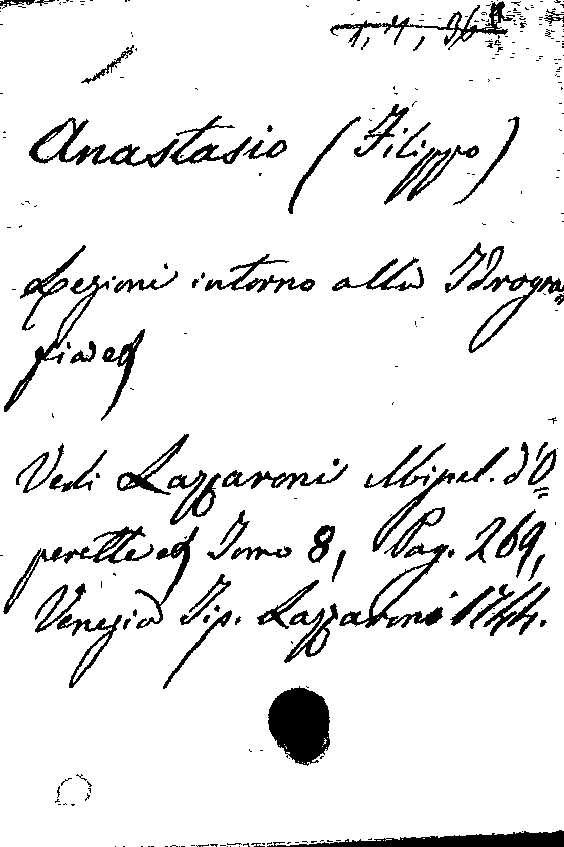 1, 4, 36
Anastasio (Filippo)
Lezioni intorno alla Idrogra=
fia ec
Vedi Lazzaroni Miscel. d'O=
perette ec Tomo 8, Pag. 269,
Venezia Tip. Lazzaroni 1744.